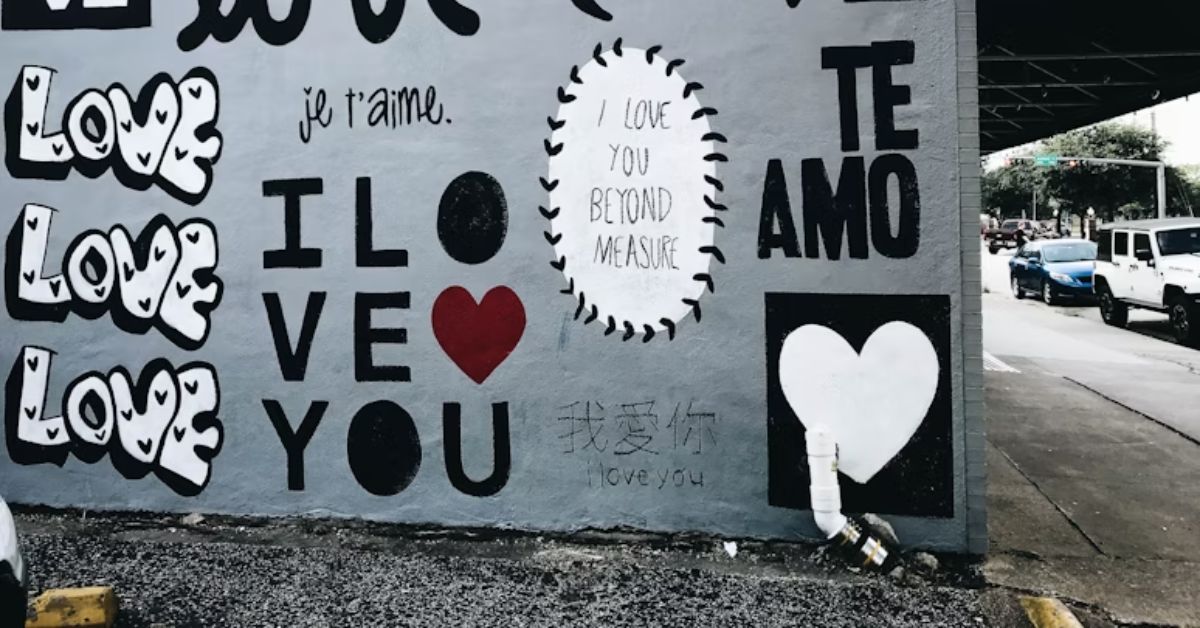 LOVE
LOVE
LOVE
je t'aime.
I LO
VE
YOU
I LOVE
YOU
BEYOND
MEASURE
我愛你
i love you
TE
AMO